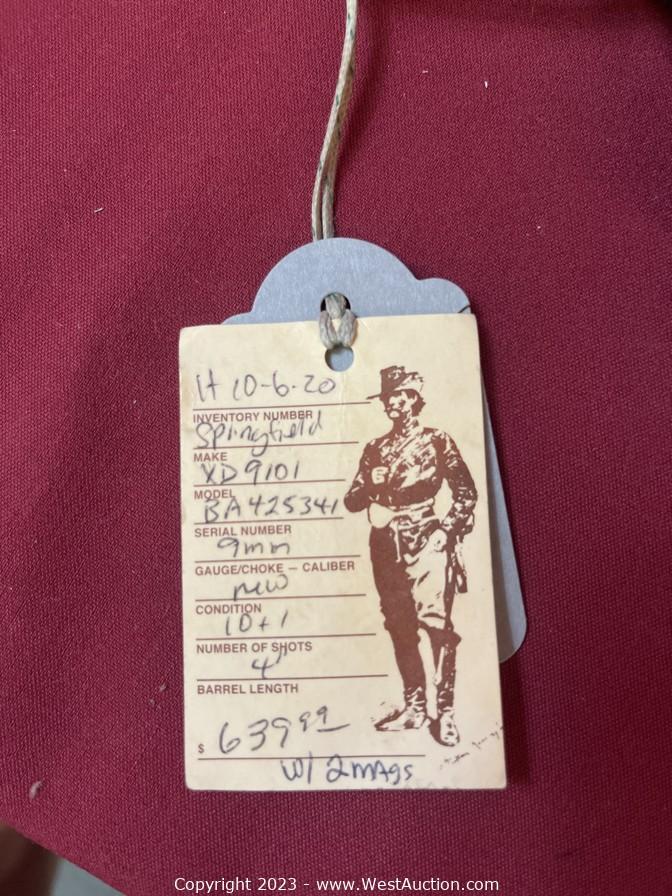 H 10-6-20
INVENTORY NUMBER
Springfield
MAKE
XD9101
MODEL
BA425341
SERIAL NUMBER
9mm
GAUGE/CHOKE — CALIBER
new
CONDITION
10+1
NUMBER OF SHOTS
4"
BARREL LENGTH
$ 639.99
w/ 2 mAgs
Copyright 2023 - www.WestAuction.com